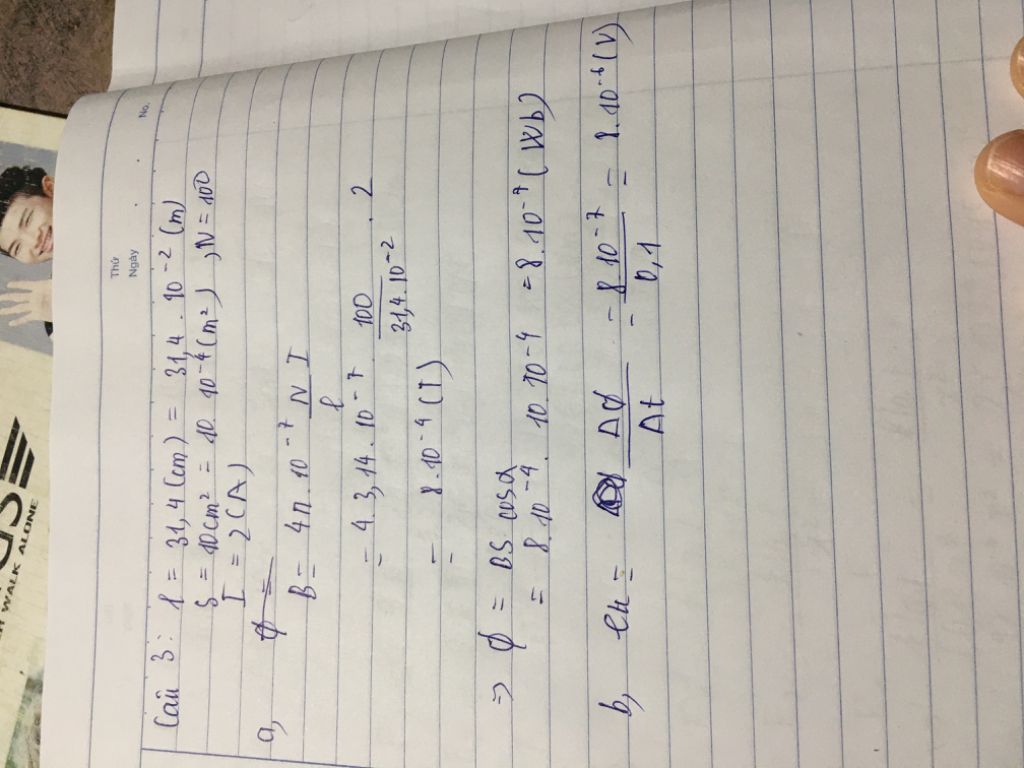 No.
Thứ
Ngày
Câu 3: l = 31,4 (cm) = 31,4 . 10⁻² (m)
S = 10cm² = 10 10⁻⁴ (m²), N = 100
I = 2 (A)
a, Φ =
B = 4π . 10⁻⁷ N/l I
= 4. 3,14. 10⁻⁷ . 100/31,4.10⁻² . 2
= 8.10⁻⁴ (T)
=> Φ = BS cosα
= 8.10⁻⁴. 10.10⁻⁴ = 8.10⁻⁷ (Wb)
b, eu = ΔΦ/Δt = 8 10⁻⁷/0,1 = 8.10⁻⁶ (V)
WALK ALONE